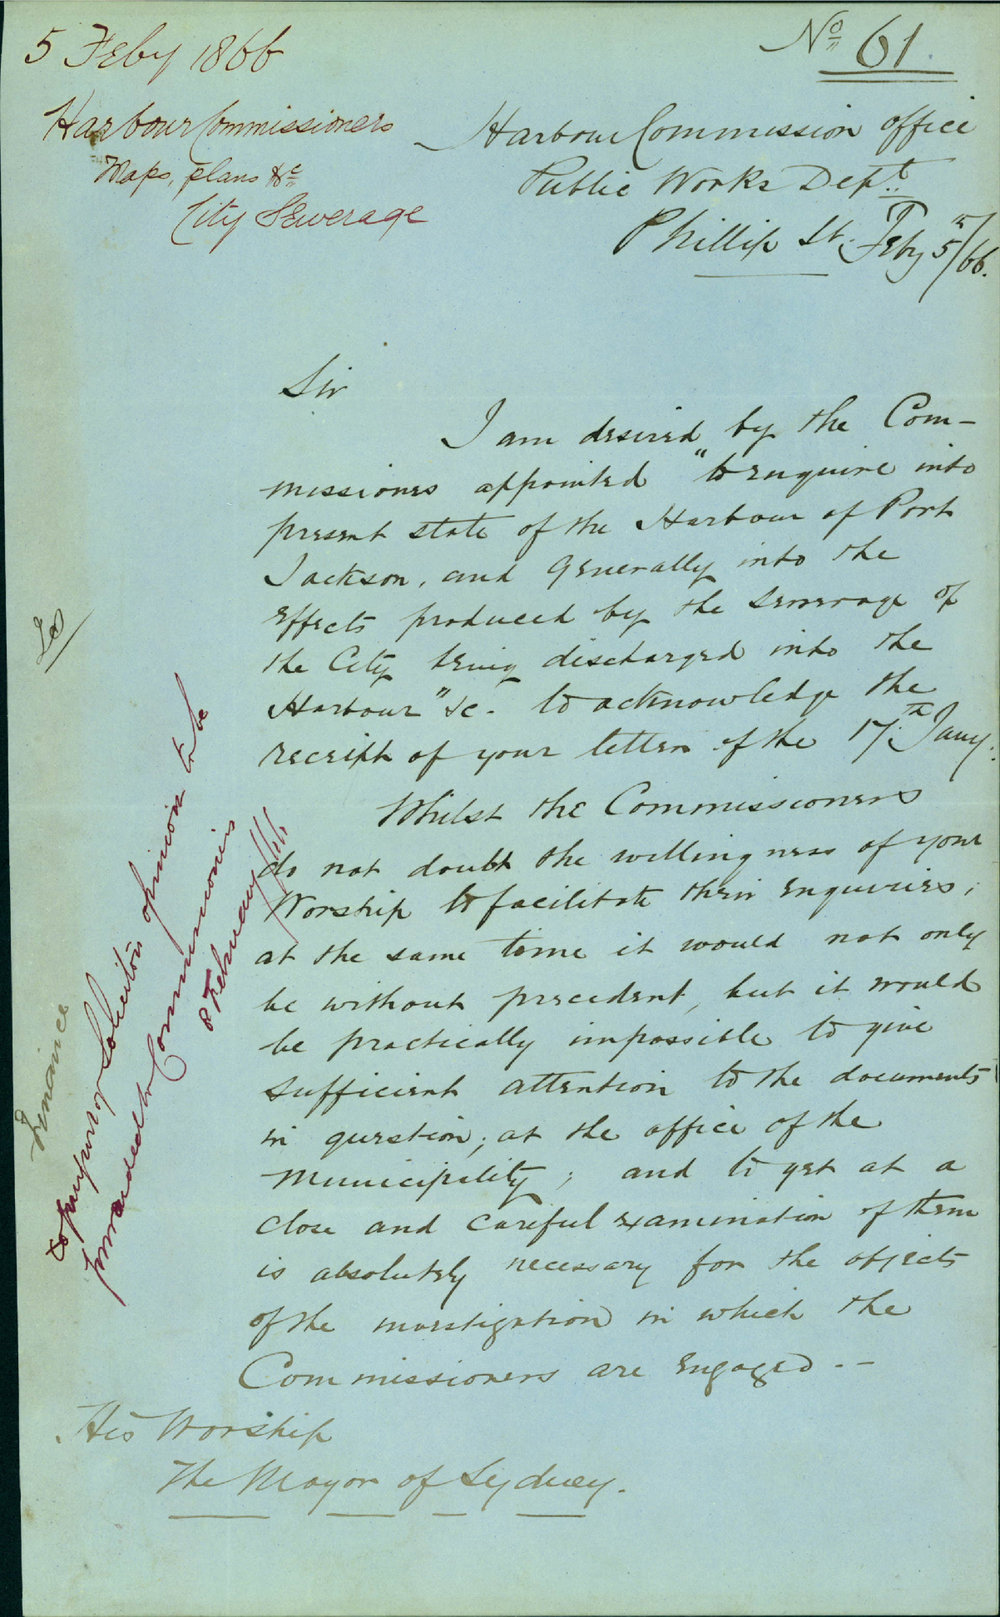 5 Feby 1866
No 61
Harbour Commissioners
Maps, plans &c
City Sewerage
Harbour Commission Office
Public Works Dept.
Phillip St. Feby 5th/66.
Sir
I am desired by the Com-
missioners appointed "to enquire into
present state of the Harbour of Port
Jackson, and generally into the
effects produced by the Sewerage of
the City being discharged into the
Harbour" &c. to acknowledge the
receipt of your letter of the 17th Jany.
Whilst the Commissioners
do not doubt the willingness of your
Worship to facilitate their enquiries,
at the same time it would not only
be without precedent, but it would
be practically impossible to give
sufficient attention to the documents
in question, at the office of the
Municipality; and to get at a
close and careful examination of them
is absolutely necessary for the objects
of the investigation in which the
Commissioners are engaged.—
His Worship
The Mayor of Sydney.
Finance
to purport of Solicitors opinion to be
forwarded to Commissioners
8 February /66